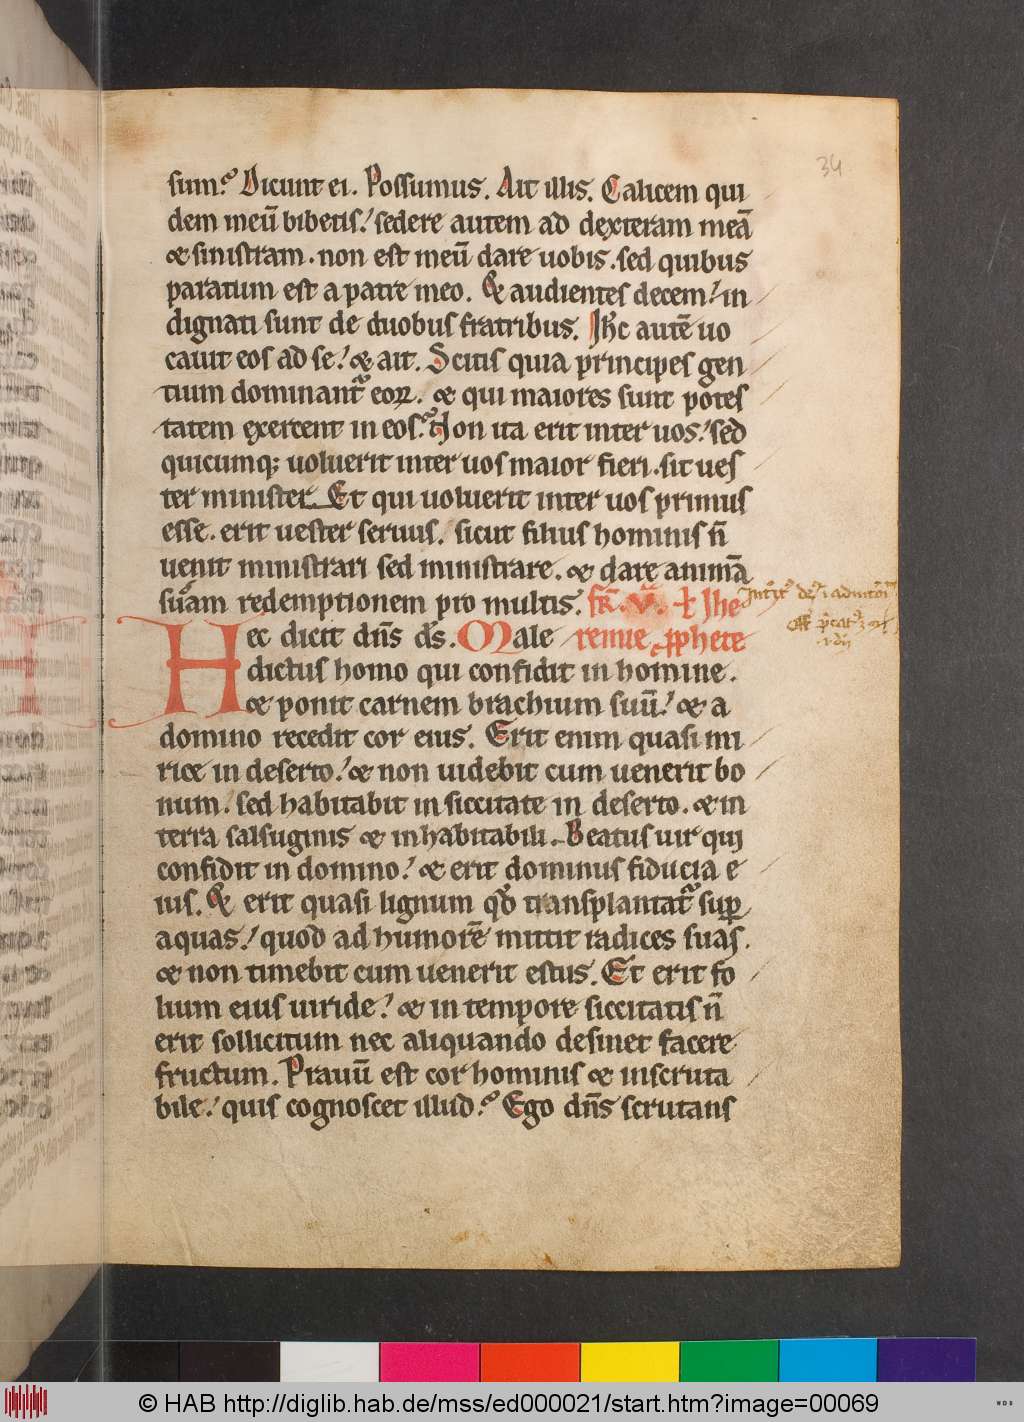 34
sum? Dicunt ei. Possumus. Ait illis. Calicem qui
dem meū bibetis. sedere autem ad dexteram meā
& sinistram. non est meū dare uobis. sed quibus
paratum est a patre meo. Et audientes decem. in
dignati sunt de duobus fratribus. Ihc autē uo
cauit eos ad se. & ait. Scitis quia principes gen
tium dominant eoꝝ. & qui maiores sunt potes
tatem exercent in eos. Non ita erit inter uos. sed
quicumq; uoluerit inter uos maior fieri. sit ues
ter minister. Et qui uoluerit inter uos primus
esse. erit uester seruus. sicut filius hominis n̄
uenit ministrari sed ministrare. & dare animā
suam redemptionem pro multis. fr̄. v. Ł Ihe
Hec dicit dn̄s ds̄. Male remie pphete
dictus homo qui confidit in homine.
& ponit carnem brachium suū. & a
domino recedit cor eius. Erit enim quasi mi
rice in deserto. & non uidebit cum uenerit bo
num. sed habitabit in siccitate in deserto. & in
terra salsuginis & inhabitabili. Beatus uir qui
confidit in domino. & erit dominus fiducia e
ius. Et erit quasi lignum qd̄ transplantat sup
aquas. quod ad humorē mittit radices suas.
& non timebit cum uenerit estus. Et erit fo
lium eius uiride. & in tempore siccitatis n̄
erit sollicitum nec aliquando desinet facere
fructum. Prauū est cor hominis & inscruta
bile. quis cognoscet illud? Ego dn̄s scrutans
© HAB http://diglib.hab.de/mss/ed000021/start.htm?image=00069